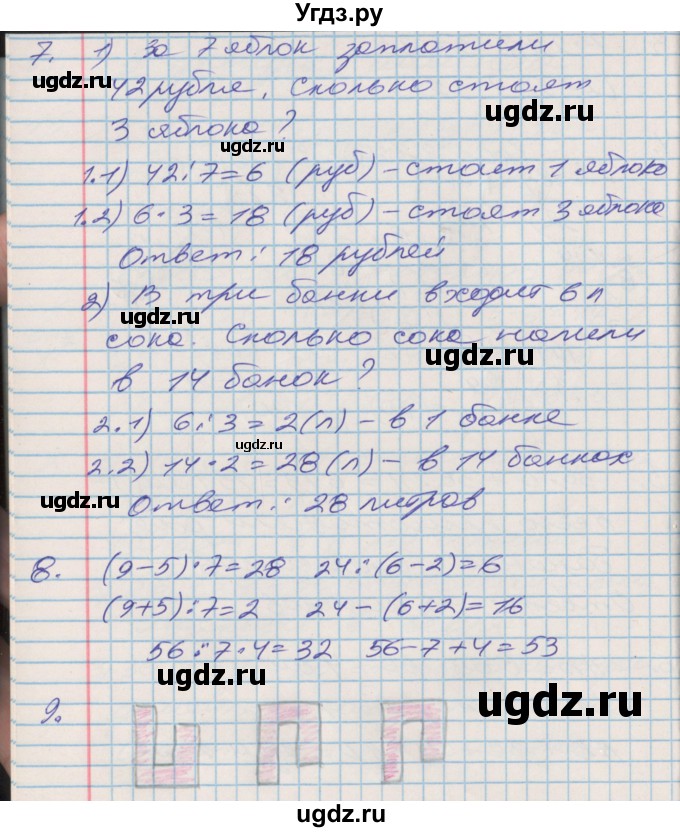 Угдз.ру
7. 1) За 7 яблок заплатили
42 рубля. Сколько стоят
3 яблока?
1.1) 42:7=6 (руб) – стоит 1 яблоко
1.2) 6·3=18 (руб) – стоят 3 яблока
Ответ: 18 рублей
2) В три банки входит 6 л
сока. Сколько сока налили
в 14 банок?
2.1) 6:3=2(л) – в 1 банке
2.2) 14·2=28(л) – в 14 банках
Ответ: 28 литров
8. (9-5)·7=28 24:(6-2)=6
(9+5):7=2 24-(6+2)=16
56:7·4=32 56-7+4=53
9.
uwgdz.ru